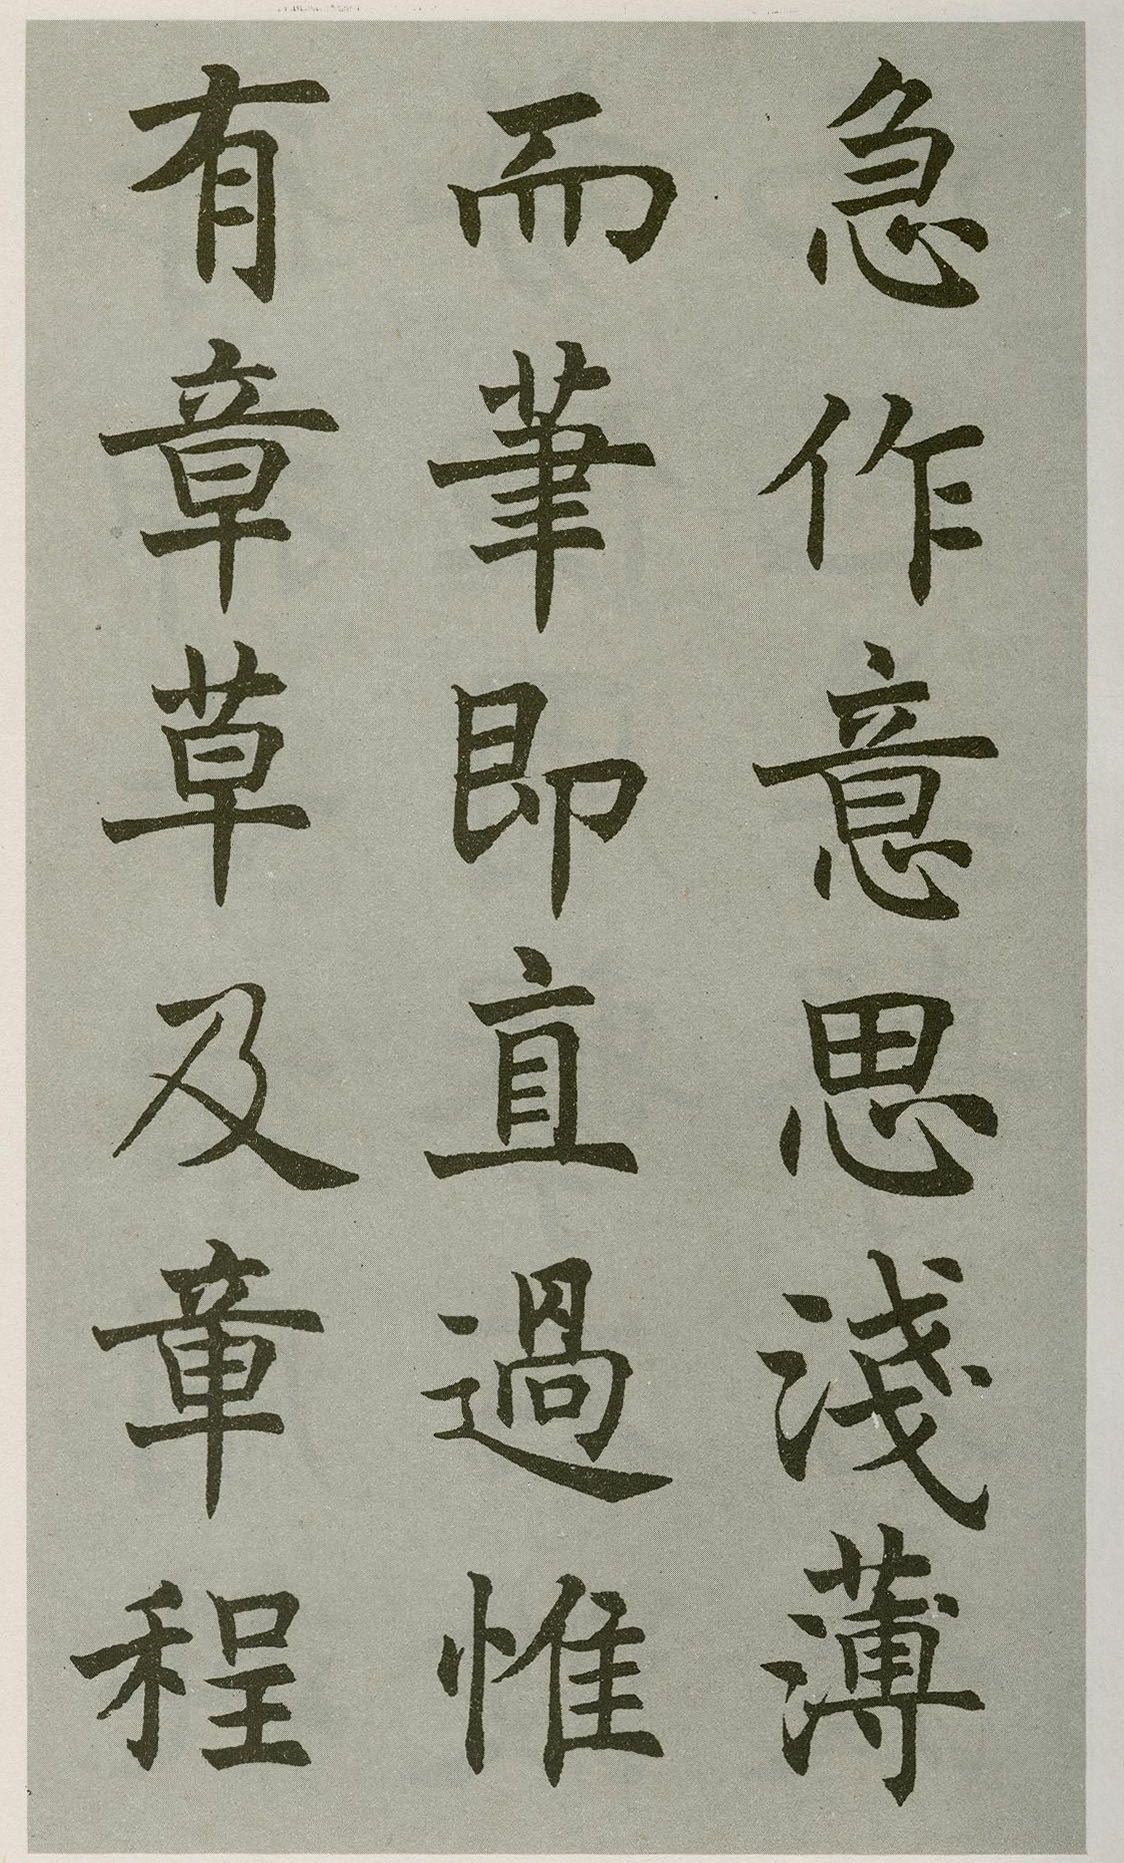 急作意思淺薄
而筆即直過惟
有章草及章程